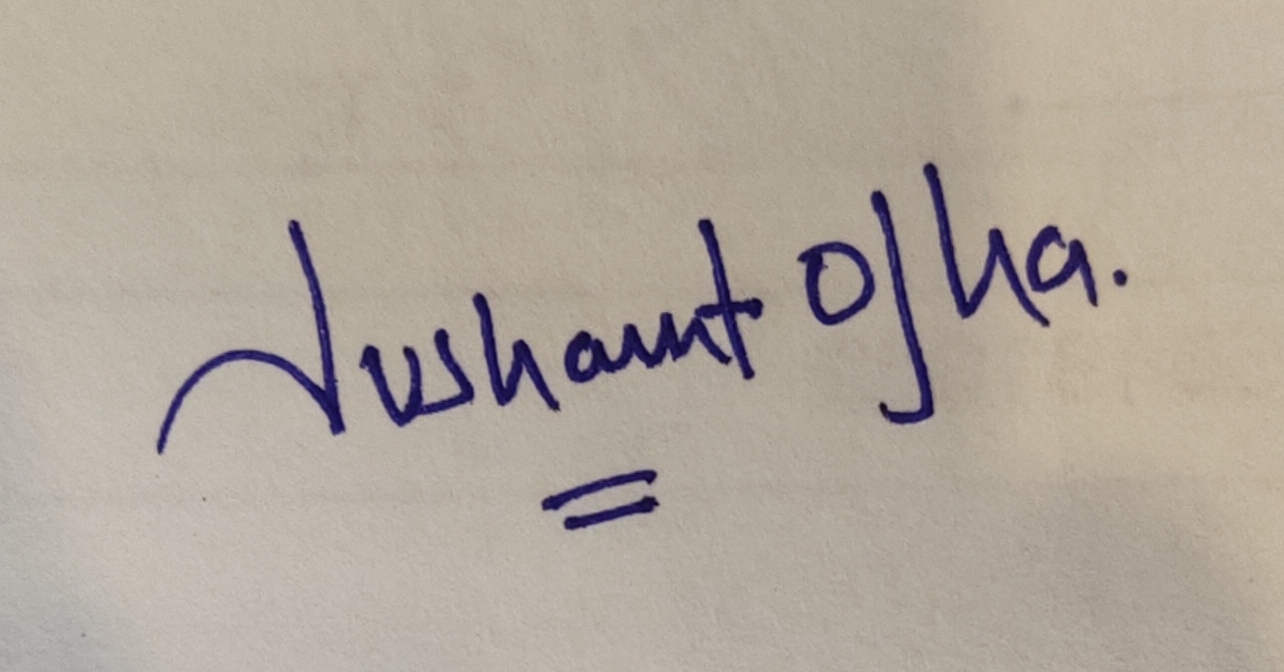 Sushant Ojha.